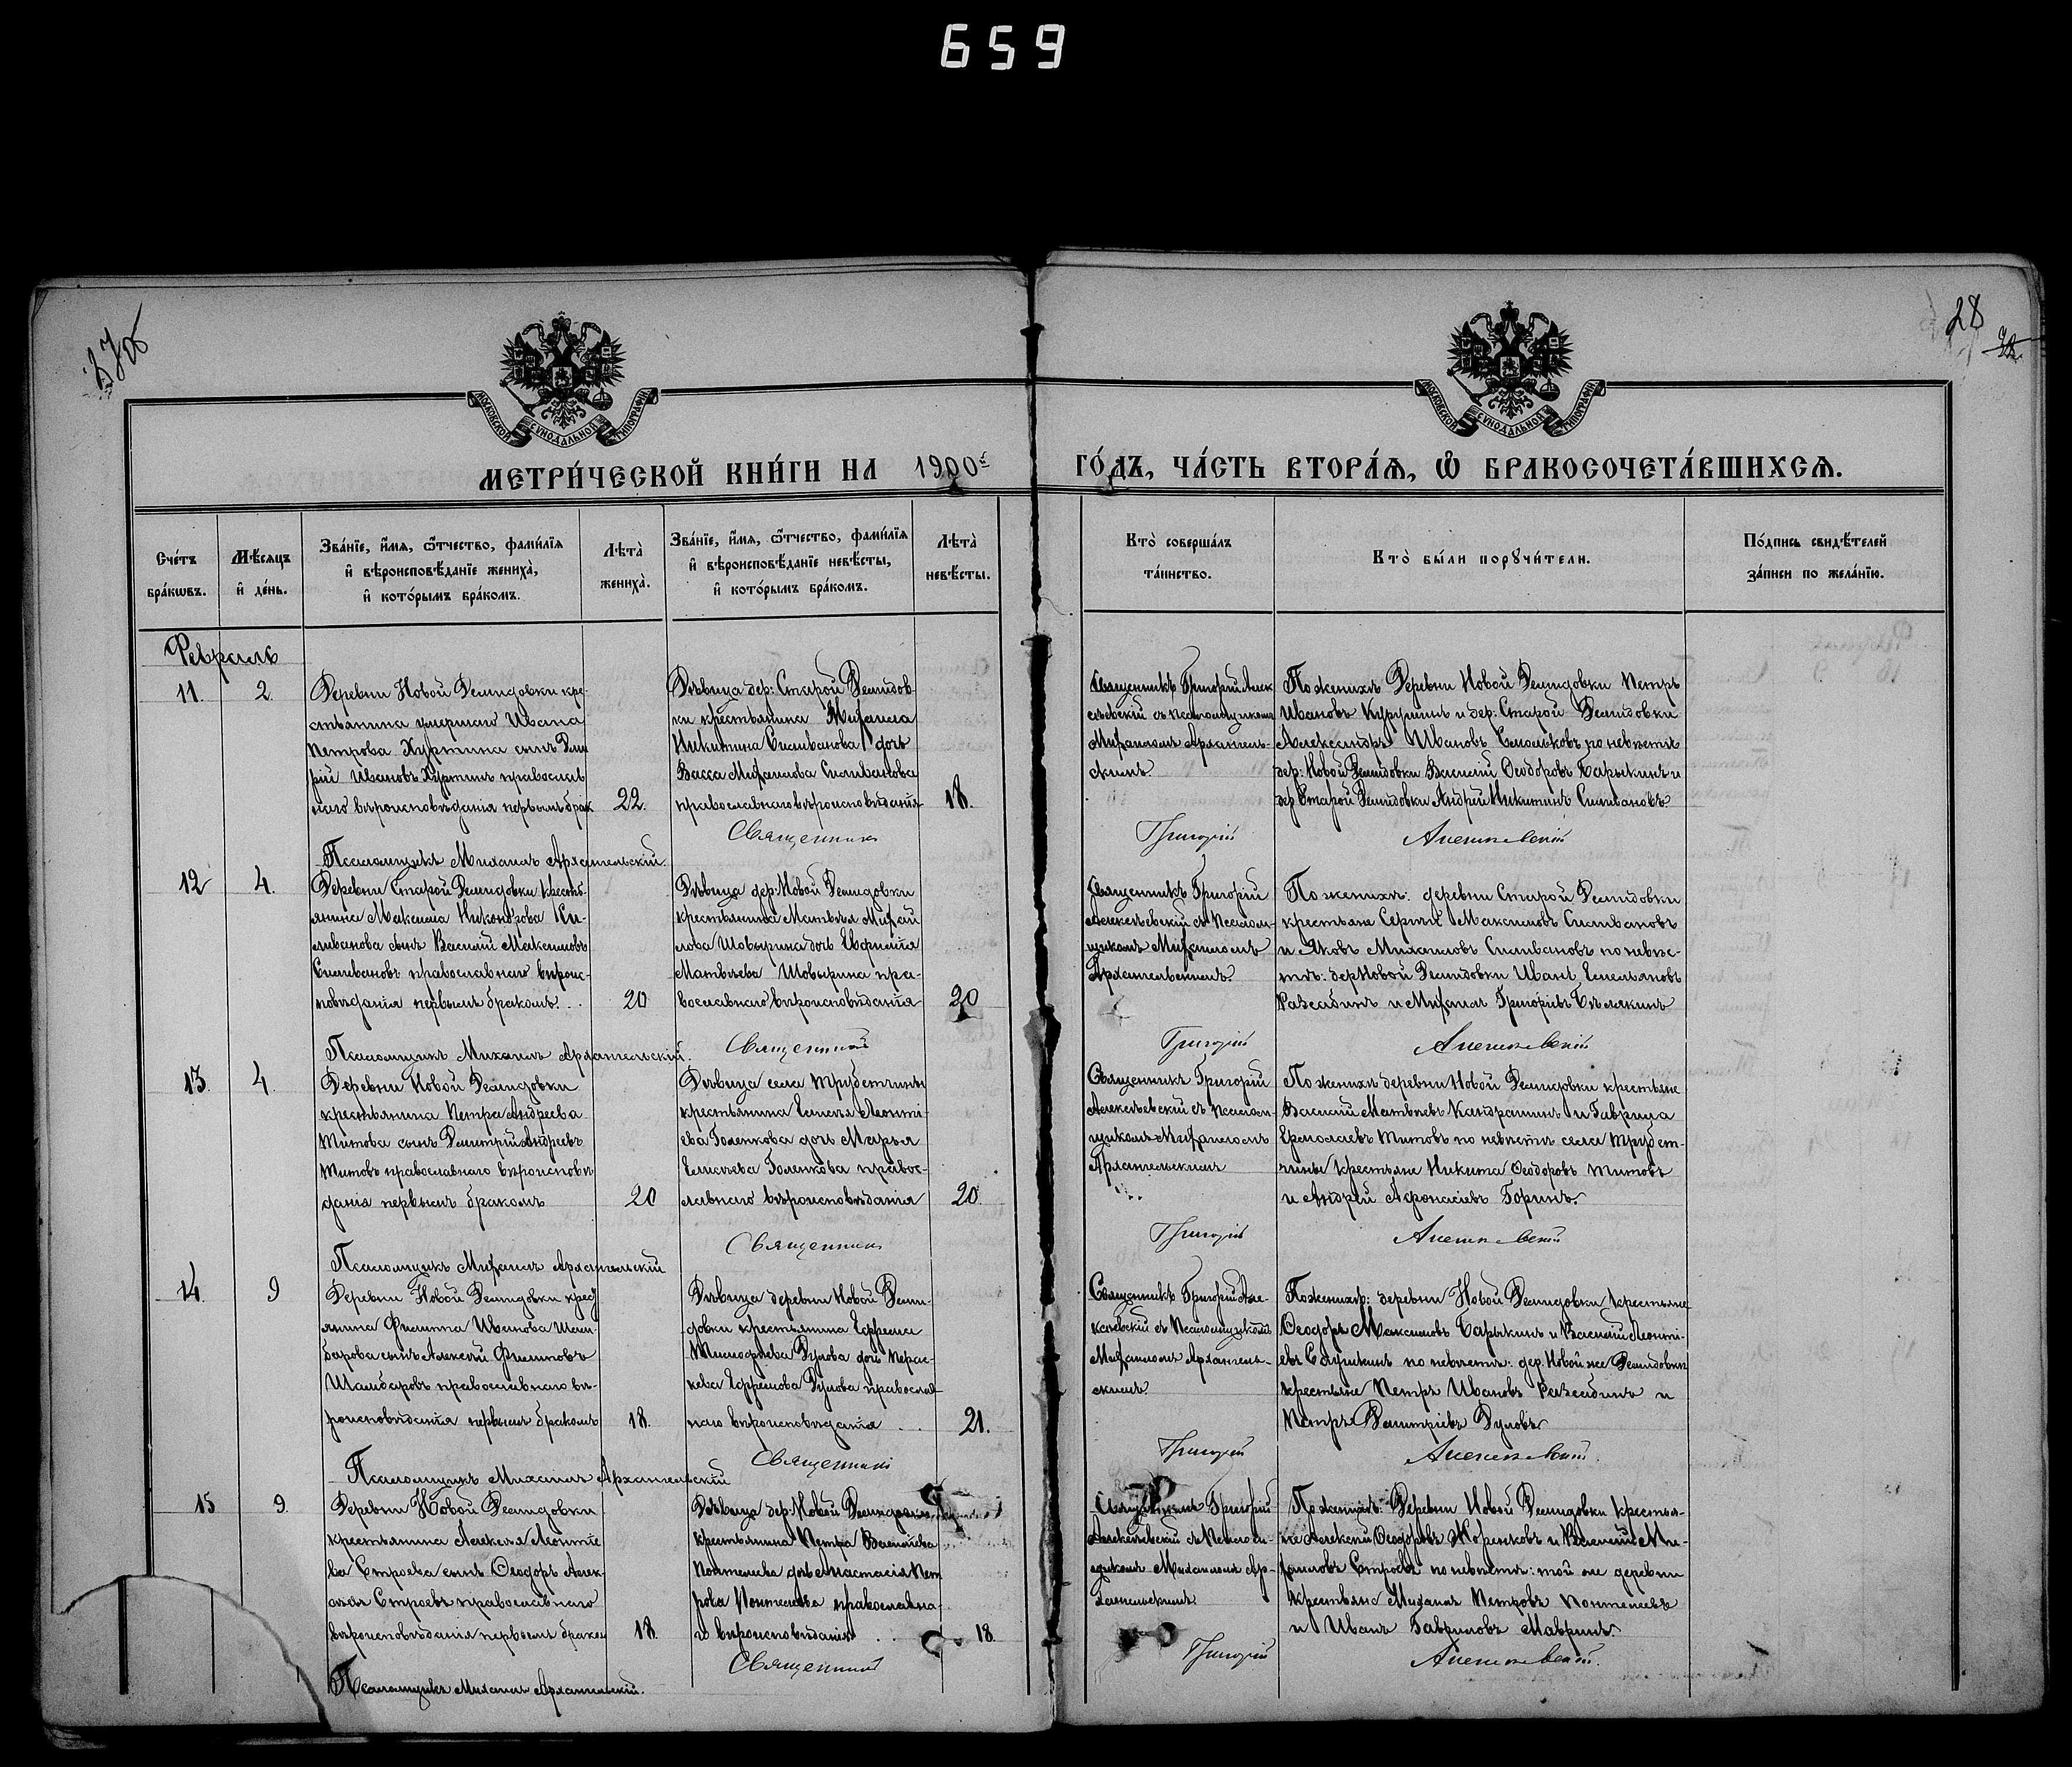 659
27об
28
МОСКОВСКОЙ СѴНОДАЛЬНОЙ ТИПОГРАФІИ
МОСКОВСКОЙ СѴНОДАЛЬНОЙ ТИПОГРАФІИ
МЕТРИ́ЧЕСКОЙ КНИ́ГИ НА 1900й ГО́ДЪ, ЧА́СТЬ ВТОРА́Я, Ѽ БРАКОСОЧЕТА́ВШИХСЯ.
Сче́тъ
бра́кѡвъ.
Мѣ́сяцъ
и҆ де́нь.
Зва́нїе, и҆́мя, ѻ҆́тчество, фами́лїя
и҆ вѣроисповѣ́данїе жениха̀,
и҆ кото́рымъ бра́комъ.
Лѣта̀
жениха̀.
Зва́нїе, и҆́мя, ѻ҆́тчество, фами́лїя
и҆ вѣроисповѣ́данїе невѣ́сты,
и҆ кото́рымъ бра́комъ.
Лѣта̀
невѣ́сты.
Кто̀ соверша́лъ
та́инство.
Кто̀ бы́ли порꙋчи́тели.
По́дпись свидѣ́телей
за́писи по жела́нїю.
Февраль
11.
2
Деревни Новой Демидовки кре-
стьянина умершаго Ивана
Петрова Куртина сынъ Дми
рій Ивановъ Куртинъ православ
наго вѣроисповѣданія первымъ брак
22.
Дѣвица дер: Старой Демидов
ки крестьянина Михаила
Никитина Силиванова дочь
Васса Михаилова Силиванова
православнаго вѣроисповѣданія
18.
Священникъ Григорій Алек
сѣевскій съ Псаломщикомъ
Михаиломъ Архангель-
скимъ
По женихѣ Деревни Новой Демидовки Петръ
Ивановъ и дер: Старой Демидовки
Александръ Ивановъ по невѣстѣ
дер: Новой Демидовки Василій Ѳеодоровъ Барыкинъ и
дер Старой Демидовки Андрей Никитинъ Силивановъ.
Священникъ Григорій Алексѣевскій
Псаломщикъ Михаилъ Архангельскій.
12
4.
Деревни Старой Демидовки крестьянина
Максима Никонорова Си-
ливанова сынъ Василій Максимовъ
Силивановъ православнаго вѣроис-
повѣданія первымъ бракомъ. . .
20
Дѣвица дер: Новой Демидовки
крестьянина Матвѣя Михай
лова Шовырина дочь Евфимія
Матвѣева Шовырина пра-
вославнаго вѣроисповѣданія
20
Священникъ Григорій
Алексѣевскій съ Псалом-
щикомъ Михаиломъ
Архангельскимъ.
По женихѣ: деревни Старой Демидовки
крестьяне Сергѣй Максимовъ Силивановъ
и Яковъ Михаиловъ Силивановъ по невѣс-
тѣ: дер Новой Демидовки Иванъ Емельяновъ
и Михаилъ Григорьевъ Бѣлякинъ
Священникъ Григорій Алексѣевскій
Псаломщикъ Михаилъ Архангельскій.
13.
4.
Деревни Новой Демидовки
крестьянина Петра Андреева
Титова сынъ Димитрій Андреевъ
Титовъ православнаго вѣроисповѣ
данія первымъ бракомъ
20
Дѣвица села Трубетчины
крестьянина Елисея Леонти-
ева Голенкова дочь Марья
Елисеева Голенкова правос-
лавнаго вѣроисповѣданія
20.
Священникъ Григорій
Алексѣевскій съ Псалом-
щикомъ Михаиломъ
Архангельскимъ
По женихѣ деревни Новой Демидовки крестьяне
Василій Матвѣевъ Кандрашинъ и Гаврила
Ермолаевъ Титовъ по невѣстѣ села Трубет-
чины крестьяне Никита Ѳеодоровъ Титовъ
и Андрей Афонасіевъ Горинъ.
Священникъ Григорій Алексѣевскій
Псаломщикъ Михаилъ Архангельскій
14.
9
Деревни Новой Демидовки крест
янина Филиппа Иванова Шам-
барова сынъ Алексѣй Филиповъ
Шамбаровъ православнаго вѣ-
роисповѣданія первымъ бракомъ
18.
Дѣвица деревни Новой Деми-
довки крестьянина Ефрема
Тимофѣева Дулова дочь Парас-
кева Ефремова Дулова православ
наго вѣроисповѣданія . .
21.
Священникъ Григорій Але-
ксѣевскій съ Псаломщикомъ
Михаиломъ Архангель-
скимъ.
По женихѣ: деревни Новой Демидовки крестьяне
Ѳеодоръ Максимовъ Барыкинъ и Василій Леонті-
евъ по невѣстѣ: дер. Новой же Демидовки
крестьяне Петръ Ивановъ и
Петръ Димитріевъ Дуловъ
Священникъ Григорій Алексѣевскій
Псаломщикъ Михаилъ Архангельскій
15
9.
Деревни Новой Демидовки
крестьянина Алексѣя Леонтіе
ва Строева сынъ Ѳеодоръ Алек-
сѣевъ Строевъ православнаго
вѣроисповѣданія первымъ браком
18.
Дѣвица дер: Новой Демидовки
крестьянина Петра Василіева
Понтелеева дочь Анастасія Пет
рова Понтелеева православна-
го вѣроисповѣданія . . .
18.
Священникъ Григорій
Алексѣевскій съ Псалом-
щикомъ Михаиломъ Ар-
хангельскимъ
По женихѣ: Деревни Новой Демидовки крестья-
не Алексѣй Ѳеодоровъ Жоренковъ и Василій Ми-
хаиловъ Строевъ по невѣстѣ: той же деревни
крестьяне Михаилъ Петровъ Понтелеевъ
и Иванъ Гавриловъ Мавринъ.
Священникъ Григорій Алексѣевскій.
Псаломщикъ Михаилъ Архангельскій.